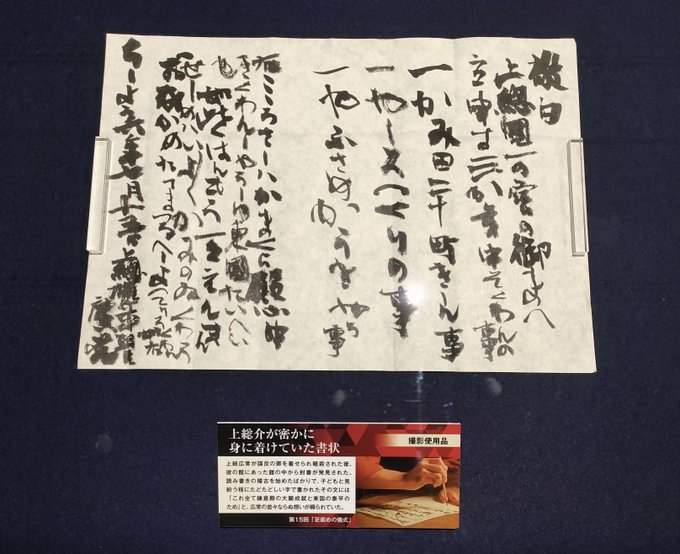 敬白
上総国一の宮の御まへ
立申す三か年中そくわんの事
一かみ田二十町きしん事
一やしろつくりの事
一やふさめ 事
右こころさしハかまくら殿心中
きくわんしやうしゆ東国たいへい
也 如此くはんもう一々ゑんまん
せしめハいよいよかみのゐくわう
ちしよう六年七月十五日上総権介平朝臣広常
上総介が密かに
身に着けていた書状
撮影使用品
上総広常が謀反の罪を着せられ暗殺された後、
彼の館にあった鎧の中から封書が発見された。
読み書きの稽古を始めたばかりで、子どもと見
紛う程にたどたどしい字で書かれたその文には
「これ全て鎌倉殿の大願成就と東国の泰平の
ため」と、広常の並々ならぬ想いが綴られていた。
第15回「足固めの儀式」